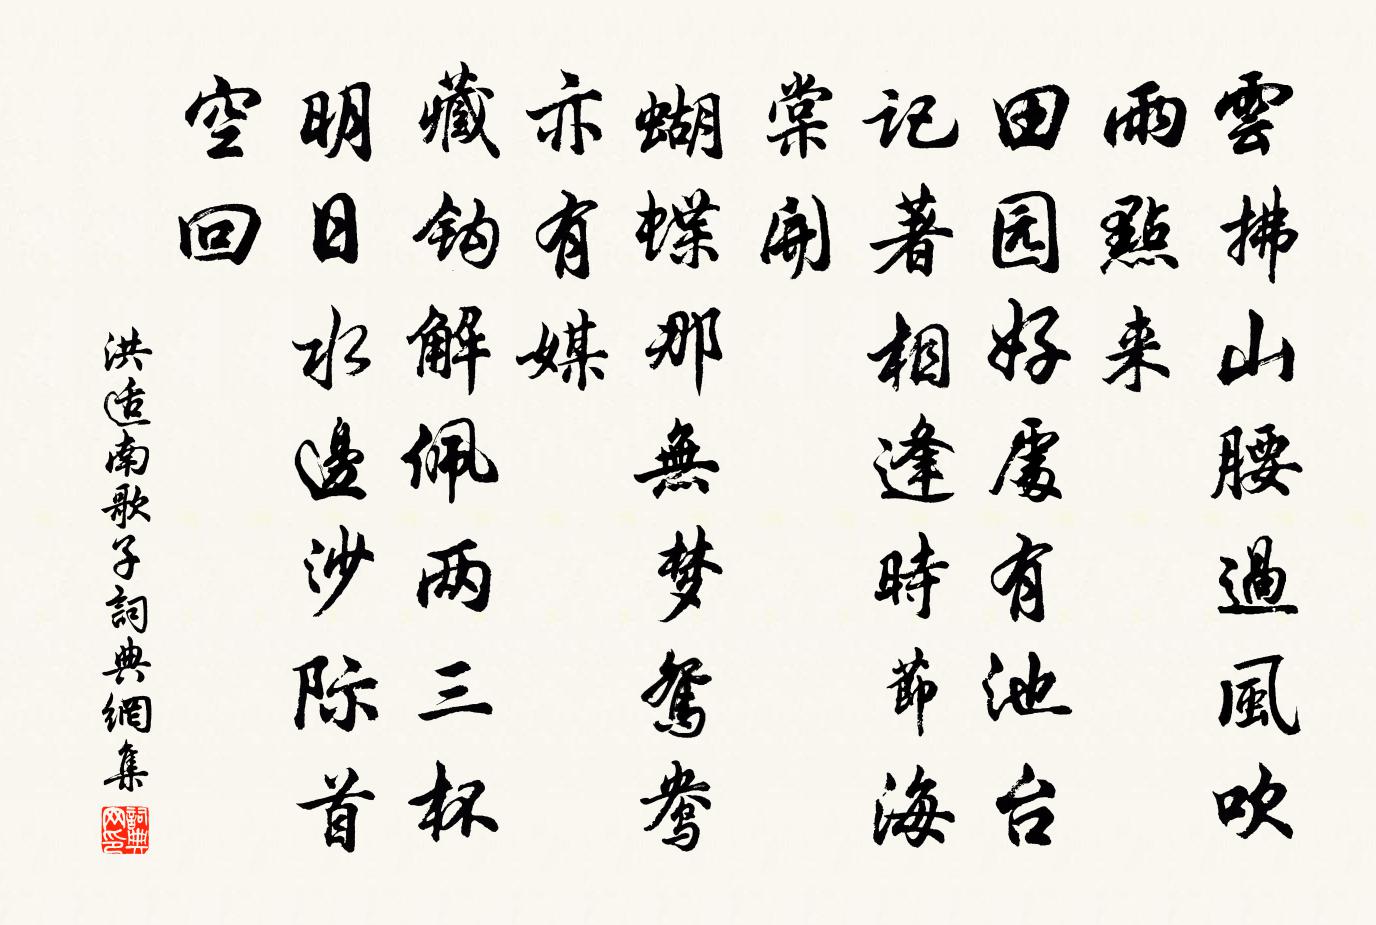 雲拂山腰過風吹
雨點来
田园好處有池台
記著相逢時節海
棠開
蝴蝶那無梦鸳鸯
亦有媒
藏鈎解佩两三杯
明日水邊沙际首
空回
洪适南歌子詞典網集
詞典网印